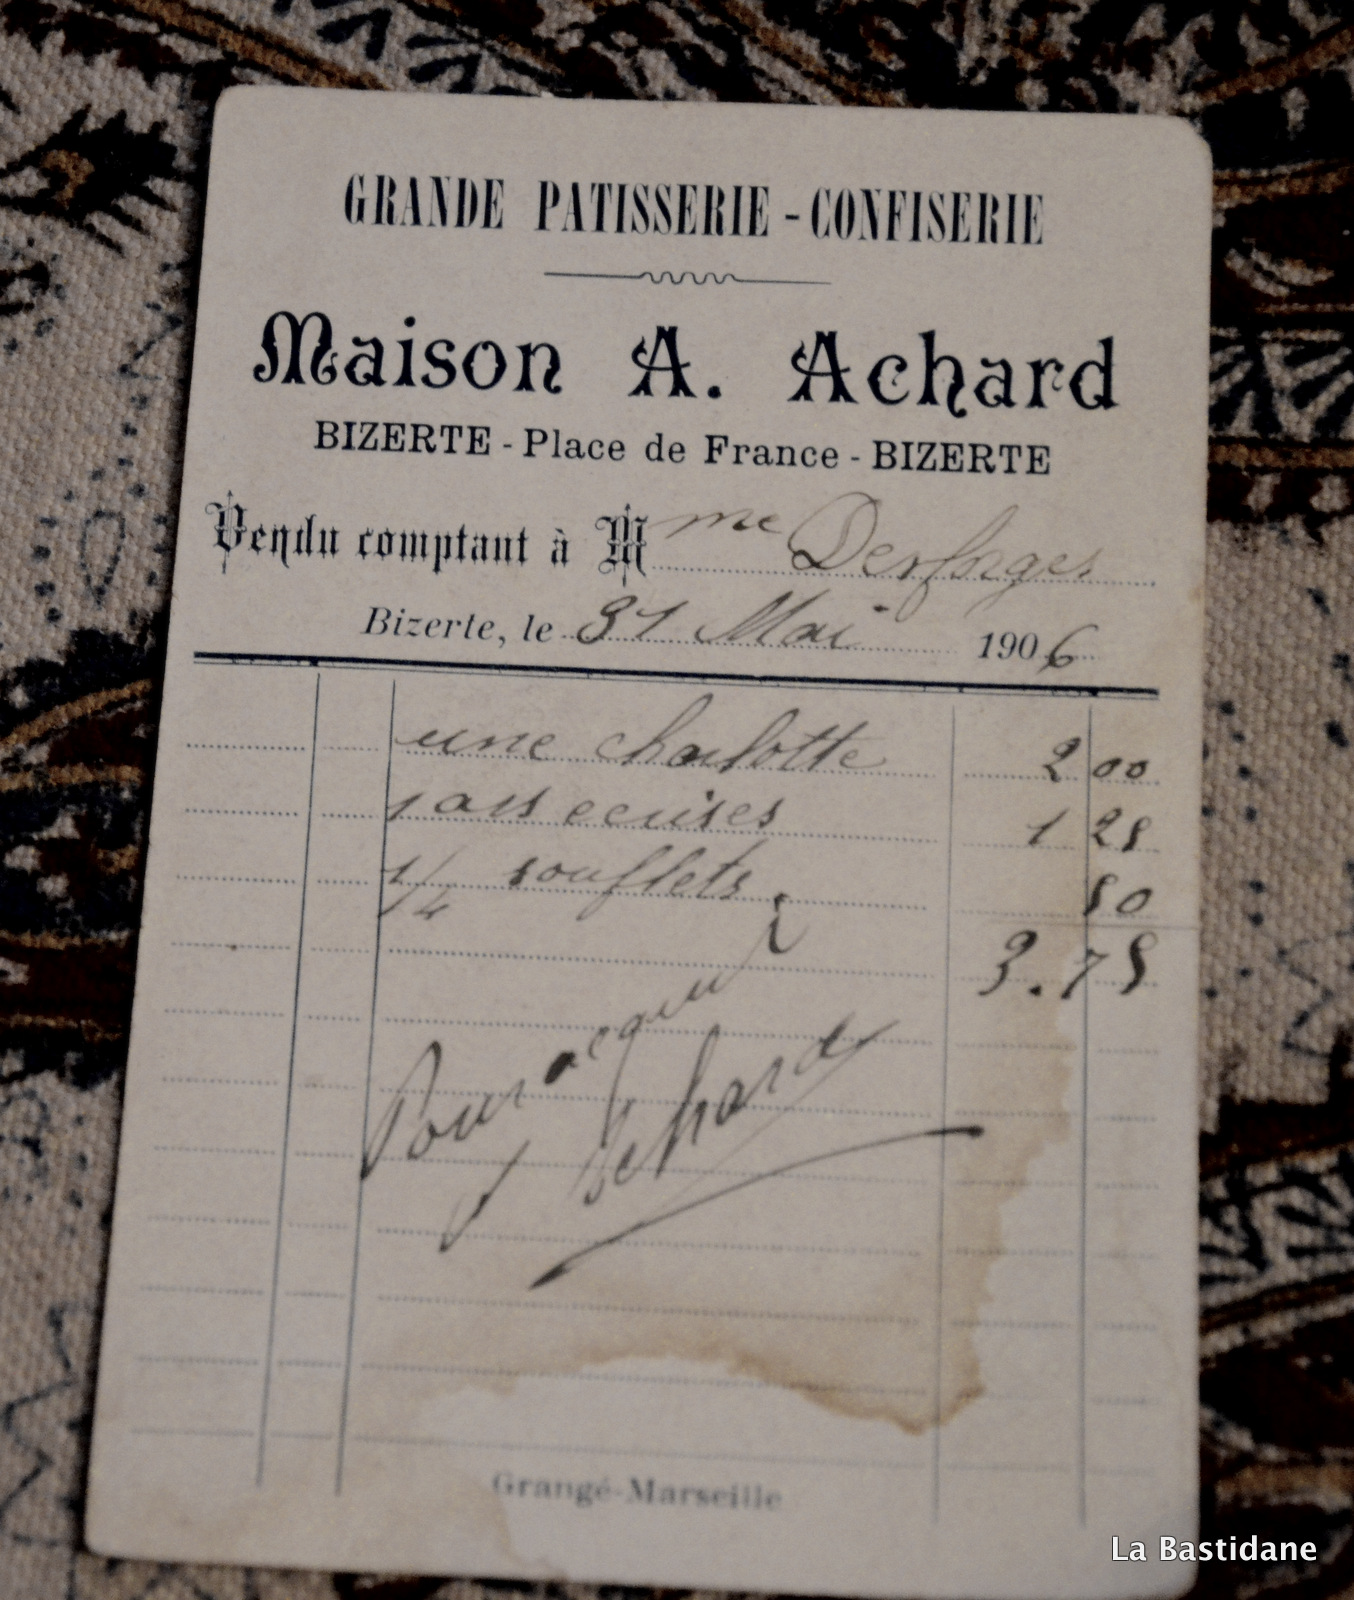 GRANDE PATISSERIE - CONFISERIE
Maison A. Achard
BIZERTE - Place de France - BIZERTE
Vendu comptant à Mme Desforges
Bizerte, le 31 Mai 1906
une charlotte 2 00
1 ass cerises 1 25
1/4 soufflets 50
3.75
Pour acquit
Achard
Grangé-Marseille
La Bastidane